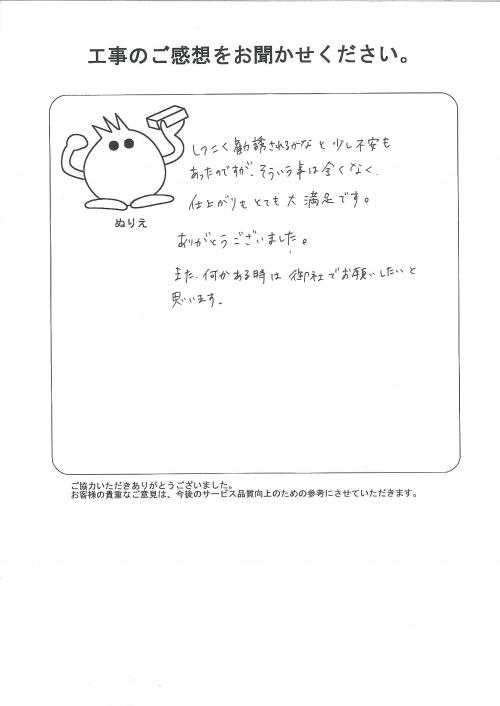 工事のご感想をお聞かせください。
しつこく勧誘されるかなと少し不安も
あったのですが、そういう事は全くなく、
仕上がりもとても大満足です。
ぬりえ
ありがとうございました。
また、何かある時は御社でお願いしたいと
思います。
ご協力いただきありがとうございました。
お客様の貴重なご意見は、今後のサービス品質向上のための参考にさせていただきます。